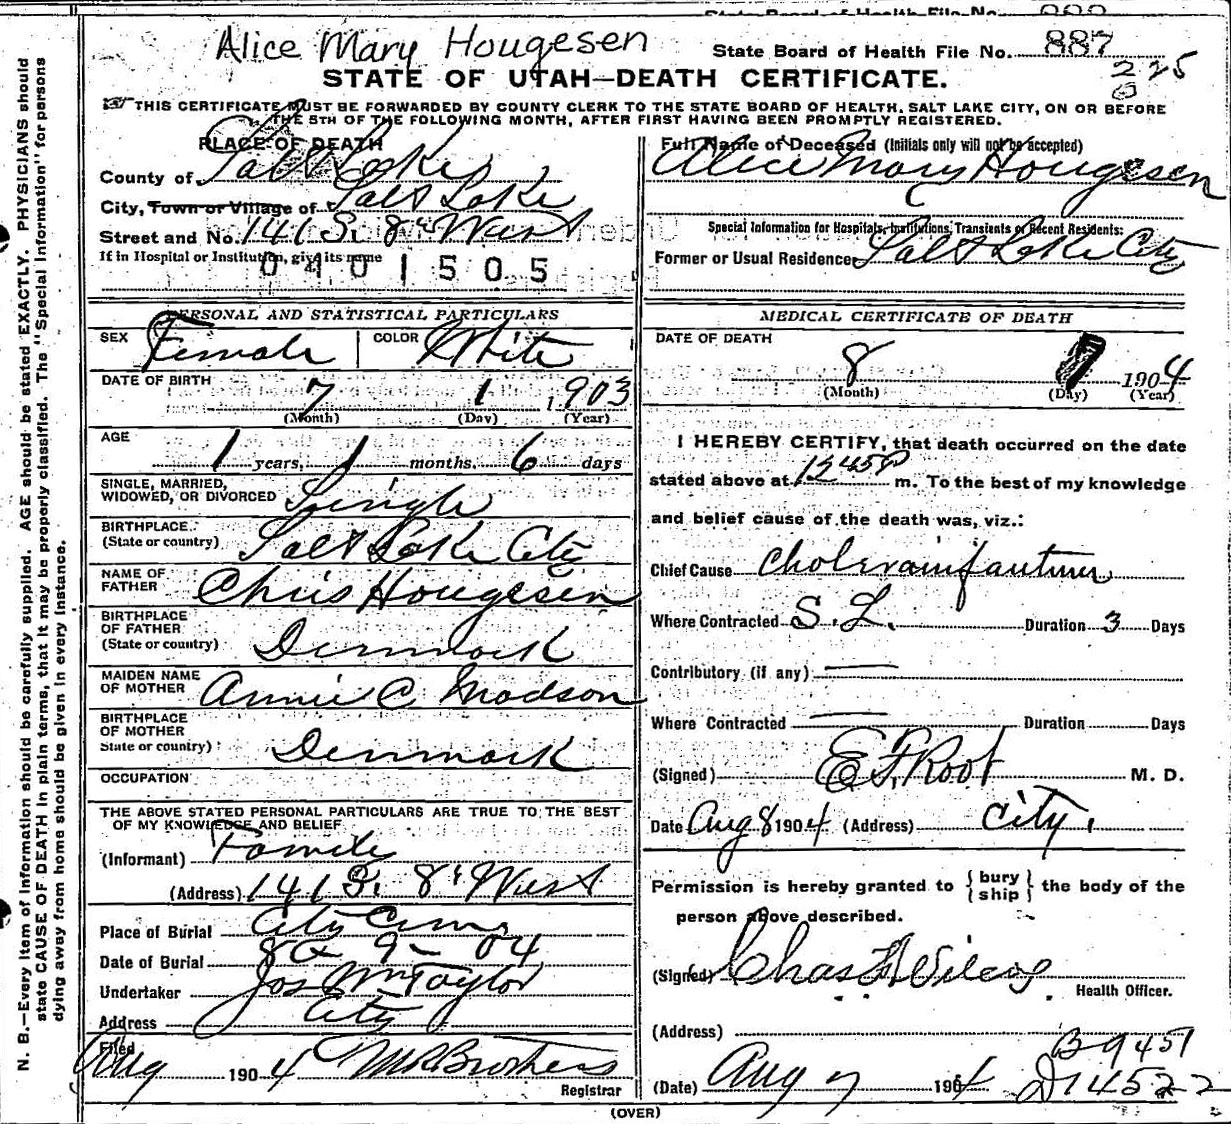 Alice Mary Hougesen
State Board of Health File No. 887
225
STATE OF UTAH—DEATH CERTIFICATE.
THIS CERTIFICATE MUST BE FORWARDED BY COUNTY CLERK TO THE STATE BOARD OF HEALTH, SALT LAKE CITY, ON OR BEFORE
THE 5TH OF THE FOLLOWING MONTH, AFTER FIRST HAVING BEEN PROMPTLY REGISTERED.
PLACE OF DEATH
County of Salt Lake
City, Town or Village of Salt Lake
Street and No. 141 S. 8th West
If in Hospital or Institution, give its name
0401505
Full Name of Deceased (Initials only will not be accepted)
Alice Mary Hougesen
Special Information for Hospitals, Institutions, Transients or Recent Residents:
Former or Usual Residence Salt Lake City
PERSONAL AND STATISTICAL PARTICULARS
SEX Female COLOR White
DATE OF BIRTH 7 1 1903
(Month) (Day) (Year)
AGE
1 years, 1 months, 6 days
SINGLE, MARRIED,
WIDOWED, OR DIVORCED Single
BIRTHPLACE
(State or country) Salt Lake City
NAME OF
FATHER Chris Hougesen
BIRTHPLACE
OF FATHER
(State or country) Denmark
MAIDEN NAME
OF MOTHER Annie C Madson
BIRTHPLACE
OF MOTHER
State or country) Denmark
OCCUPATION
THE ABOVE STATED PERSONAL PARTICULARS ARE TRUE TO THE BEST
OF MY KNOWLEDGE AND BELIEF
(Informant) Family
(Address) 141 S. 8t West
Place of Burial City Cem
Date of Burial 8 9 - 04
Undertaker Jos Wm Taylor
Address City
Filed Aug 1904
Registrar
MEDICAL CERTIFICATE OF DEATH
DATE OF DEATH
8 1904
(Month) (Day) (Year)
I HEREBY CERTIFY, that death occurred on the date
stated above at 1245P m. To the best of my knowledge
and belief cause of the death was, viz.:
Chief Cause Cholera infantum
Where Contracted S. L. Duration 3 Days
Contributory (if any)
Where Contracted Duration Days
(Signed) E F Root M. D.
Date Aug 8 1904 (Address) City.
Permission is hereby granted to { bury ship } the body of the
person above described.
(Signed) Chas Wilcox
Health Officer.
(Address)
B 9457
(Date) Aug 7 1904 D14522
(OVER)
N. B.—Every item of information should be carefully supplied. AGE should be stated EXACTLY. PHYSICIANS should
state CAUSE OF DEATH in plain terms, that it may be properly classified. The "Special Information" for persons
dying away from home should be given in every instance.